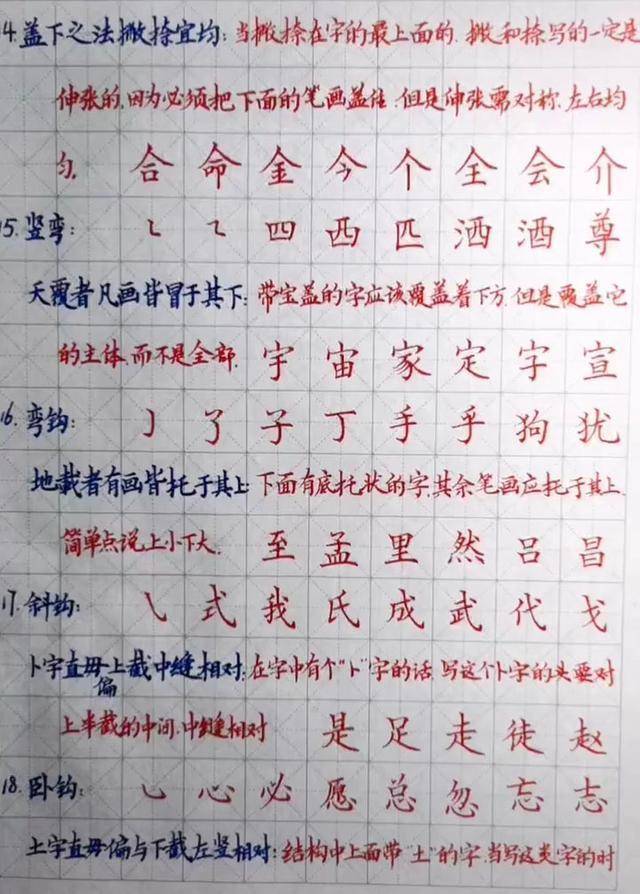 4.盖下之法撇捺宜均：当撇捺在字的最上面的，撇和捺写的一定是
伸张的，因为必须把下面的笔画盖住，但是伸张需对称，左右均
匀. 合 命 金 今 个 全 会 介
15.竖弯： 四 西 匹 洒 酒 尊
天覆者凡画皆冒于其下：带宝盖的字应该覆盖着下方，但是覆盖它
的主体，而不是全部. 宇 宙 家 定 字 宣
16.弯钩： 了 子 丁 手 乎 狗 犹
地载者有画皆托于其上：下面有底托状的字，其余笔画应托于其上.
简单点说上小下大. 至 孟 里 然 吕 昌
17.斜钩： 式 我 氏 成 武 代 戈
卜字直偏上截中缝相对：在字中有个"卜"字的话，写这个卜字的头要对
上半截的中间，中缝相对 是 足 走 徒 赵
18.卧钩： 心 必 愿 总 忽 忘 志
土字直偏与下截左竖相对：结构中上面带"土"的字，当写这类字的时